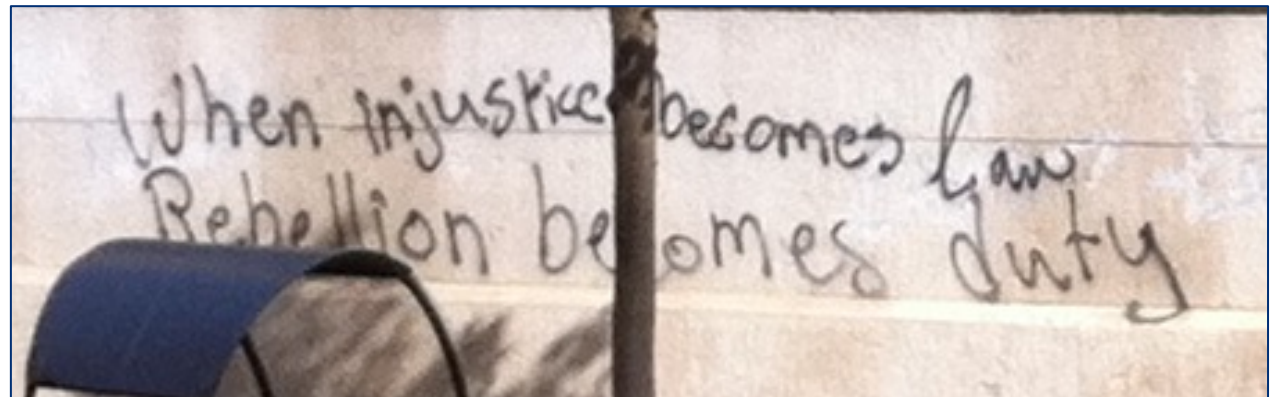 When injustice becomes law
Rebellion becomes duty